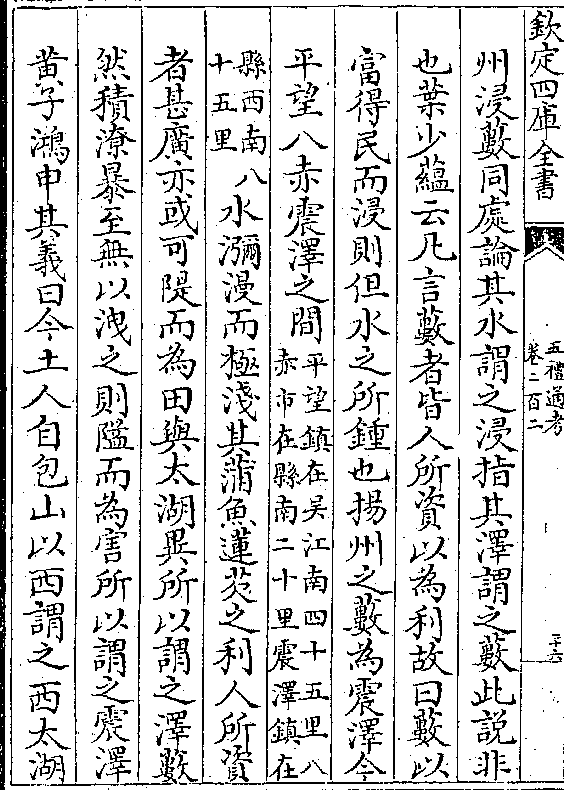 欽定四庫全書
五禮通考
卷二百二
三六
州浸藪同處論其水謂之浸指其澤謂之藪此說非
也葉少蘊云凡言藪者皆人所資以為利故曰藪以
富得民而浸則但水之所鍾也揚州之藪為震澤今
平望八赤震澤之間平望鎮在吳江南四十五里八
赤市在縣南二十里震澤鎮在
縣西南八
十五里
水瀰漫而極淺其蒲魚蓮芡之利人所資
者甚廣亦或可隄而為田與太湖異所以謂之澤藪
然積潦暴至無以洩之則隘而為害所以謂之震澤
黄子鴻申其義曰今土人自包山以西謂之西太湖